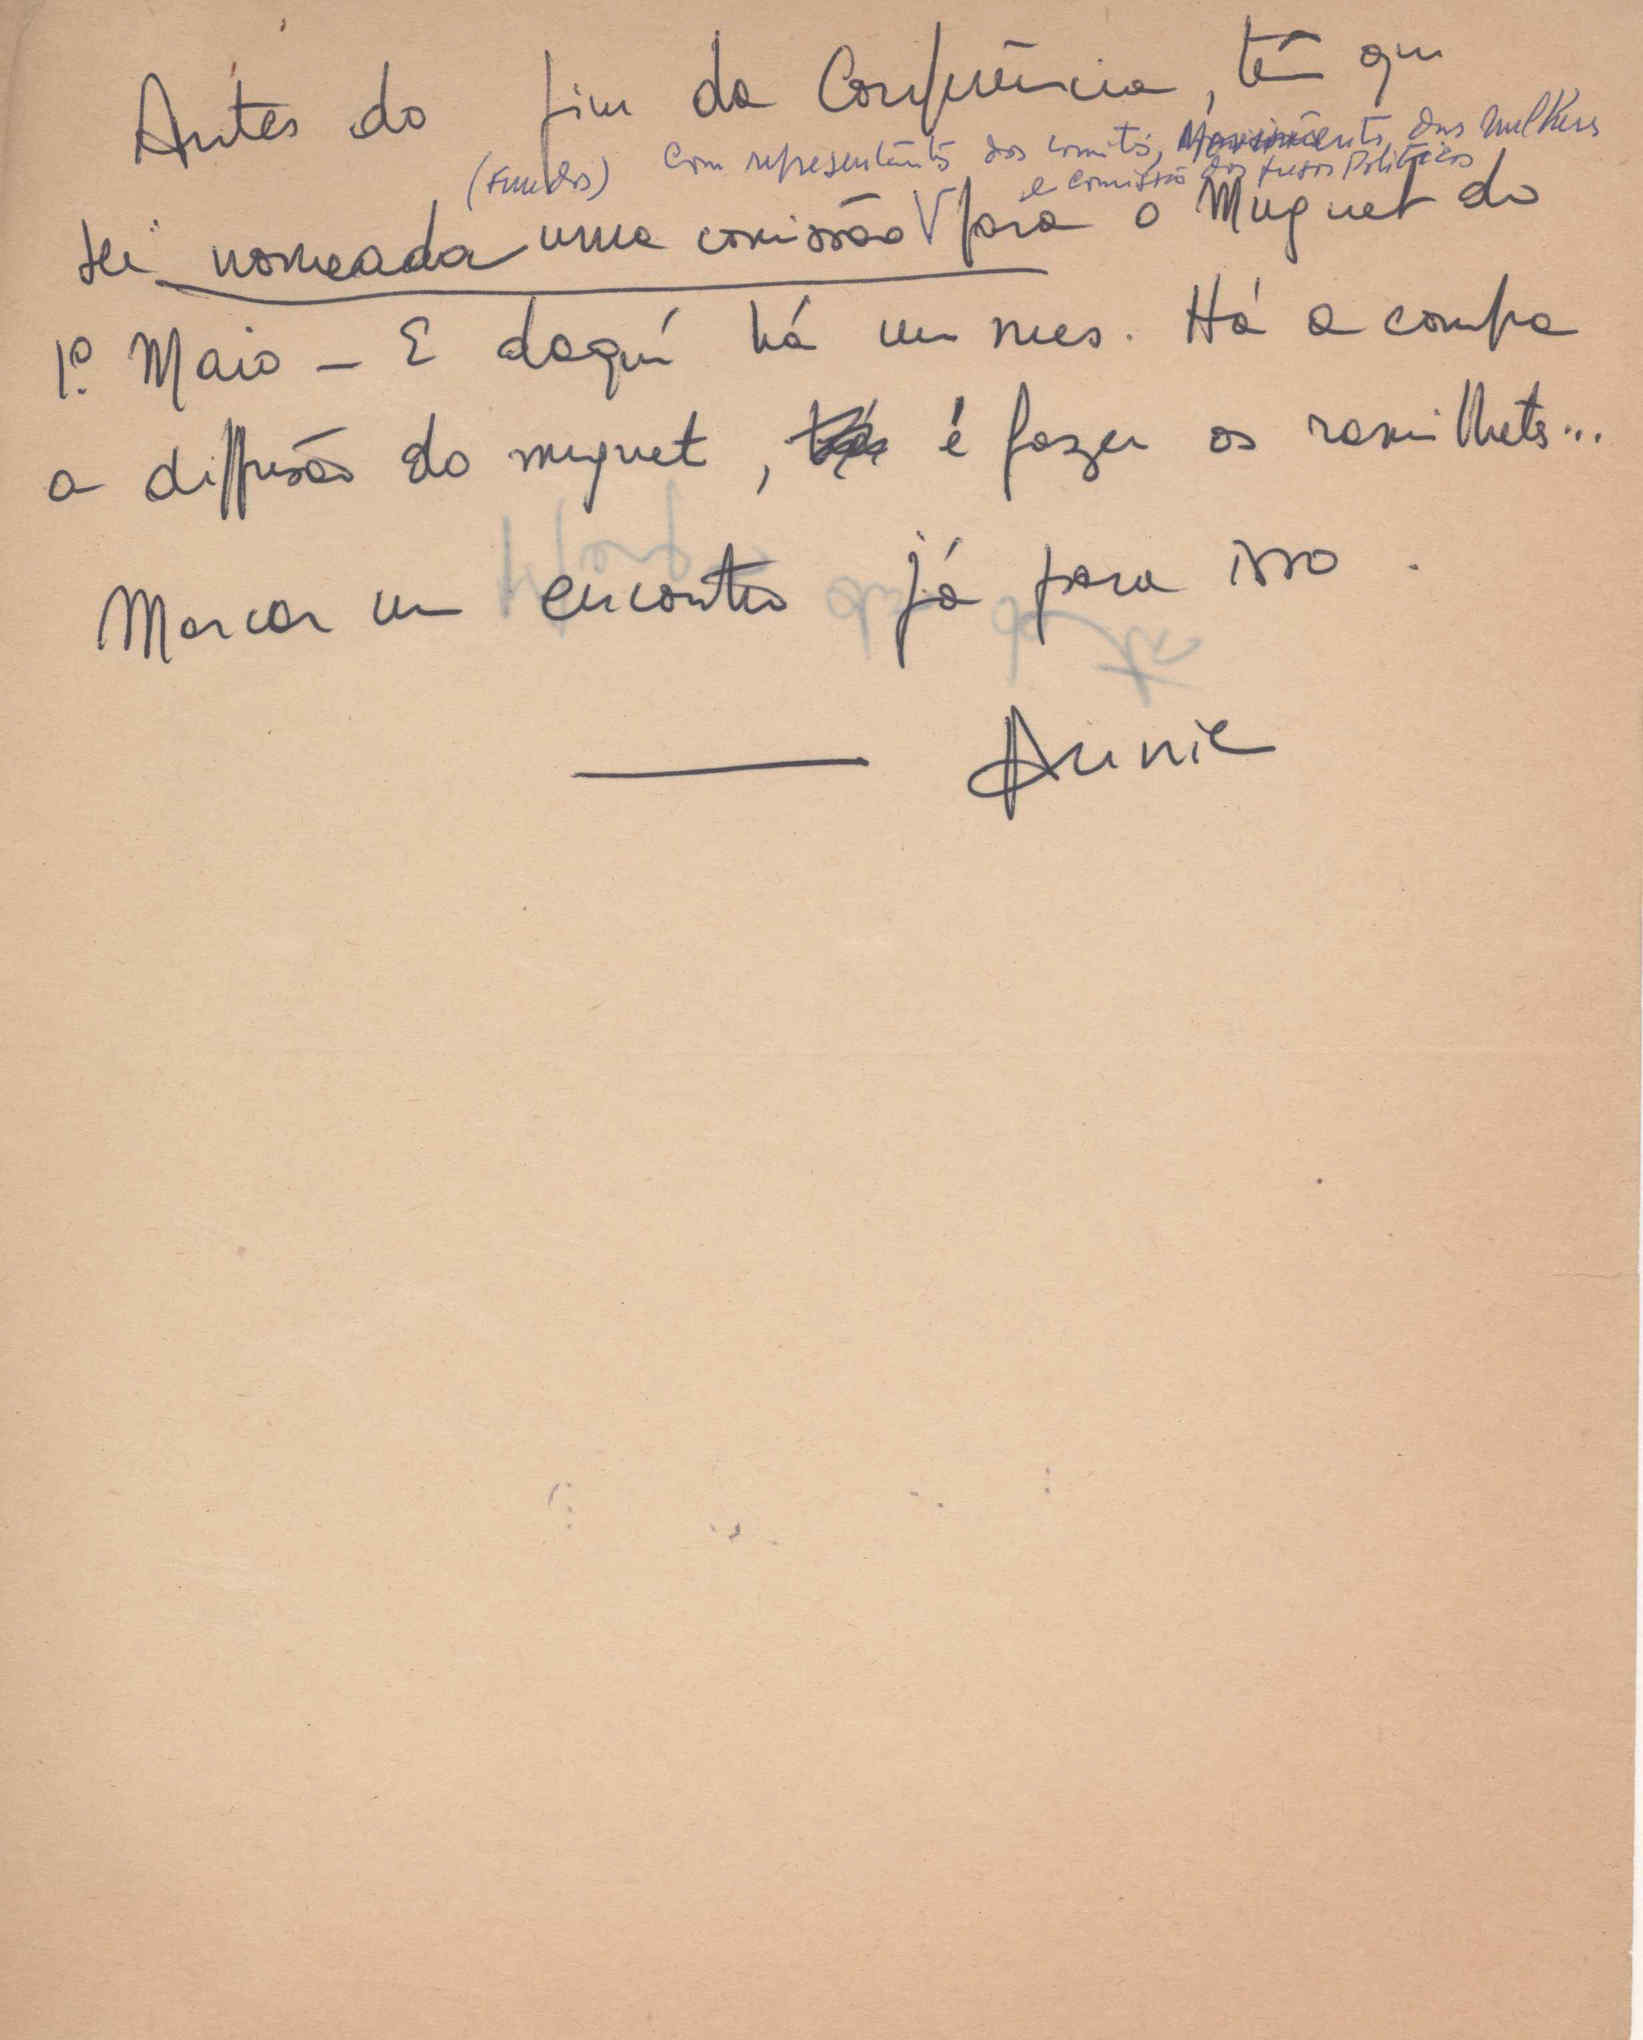 Antes do fim da Conferência, tem que
(Fundos) com representantes dos comités, Movimento das mulheres
e comissão dos presos Políticos
ser nomeada uma comissão para o Muguet do
1º Maio — E daquí há um mes. Há a compra
a diffusão do muguet, é fazer os ramilhetes...
Marcar um encontro já para isso.
Annie